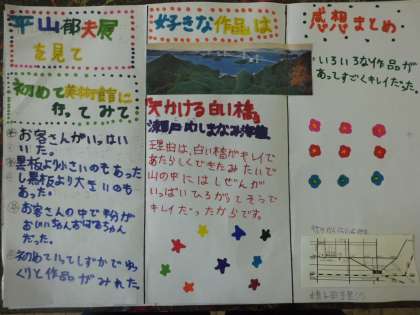 平山郁夫展
を見て
初めて美術館に
行ってみて
お客さんがいっぱい
いた。
黒板より小さいのもあった
し黒板より大きいのもあ
った。
お客さんの中で半分が
おじいちゃんおばあちゃん
だった。
初めていってしずかでゆっ
くりと作品がみれた。
好きな作品は
天かける白い橋
瀬戸内しまなみ海道
理由は、白い橋がキレイで
あたらしくできたみたいで
山の中にはしぜんが
いっぱいひろがってそうで
キレイだったからです。
感想まとめ
いろいろな作品が
あってすごくキレイだった。